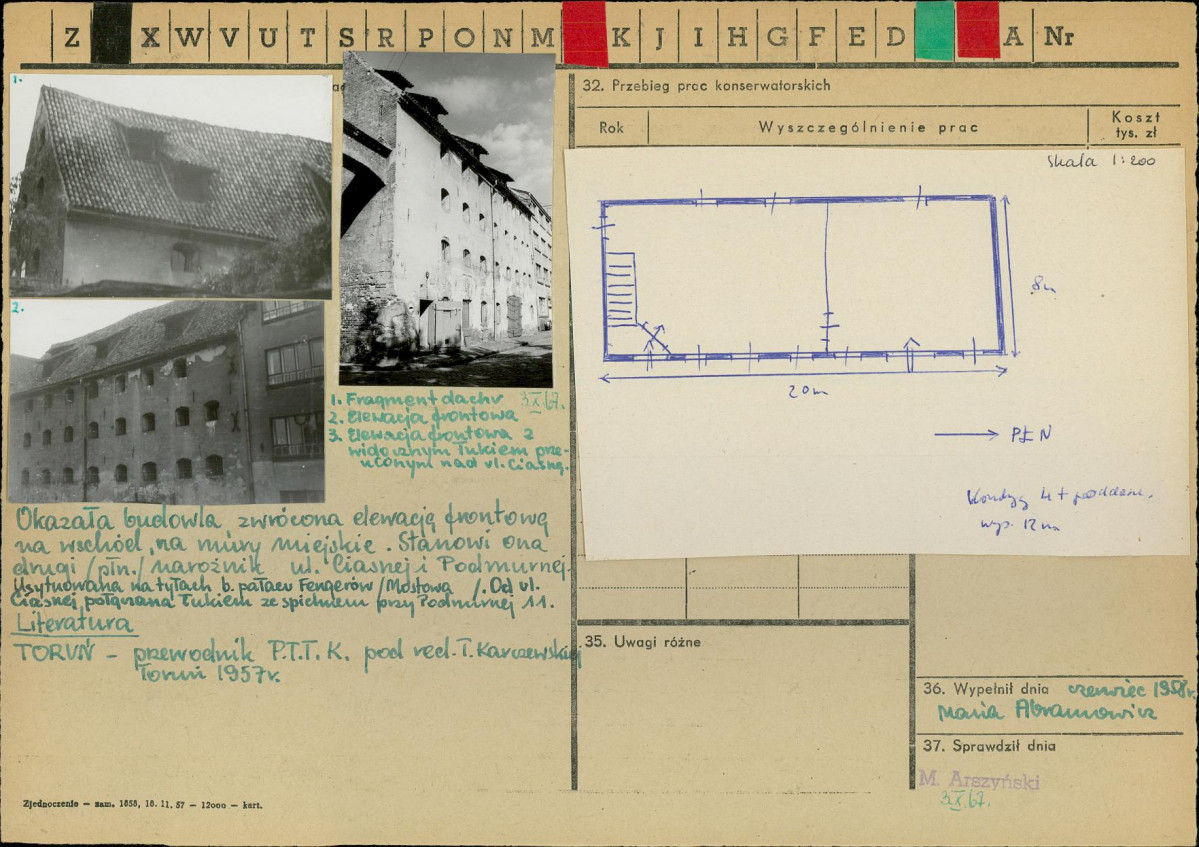 Z X W V U T S R P O N M K J I H G F E D A Nr
1.
2.
1. Fragment dachu 3 X 67.
2. Elewacja frontowa
3. Elewacja frontowa z
widocznym łukiem prze-
uconym nad ul. Ciasną.
Okazała budowla zwrócona elewacją frontową
na wschód, na mury miejskie. Stanowi ona
drugi /płn./ narożnik ul. Ciasnej i Podmurnej.
Usytuowana na tyłach b. pałacu Fengerów /Mostowa /. Od ul.
Ciasnej połączona łukiem ze spichrzem przy Podmurnej 11.
Literatura
TORUŃ – przewodnik P.T.T.K. pod red. T. Karczewskiej
Toruń 1957r.
Zjednoczenie – zam. 1858, 18. 11. 57 – 12000 – kart.
32. Przebieg prac konserwatorskich
Rok Wyszczególnienie prac Koszt
tys. zł
skala 1:200
8m
20m
PŁN
Kondyg 4 + poddasze.
wys. 12m
35. Uwagi różne
36. Wypełnił dnia czerwiec 1958r.
Maria Abramowicz
37. Sprawdził dnia
M. Arszyński
3.X.67.